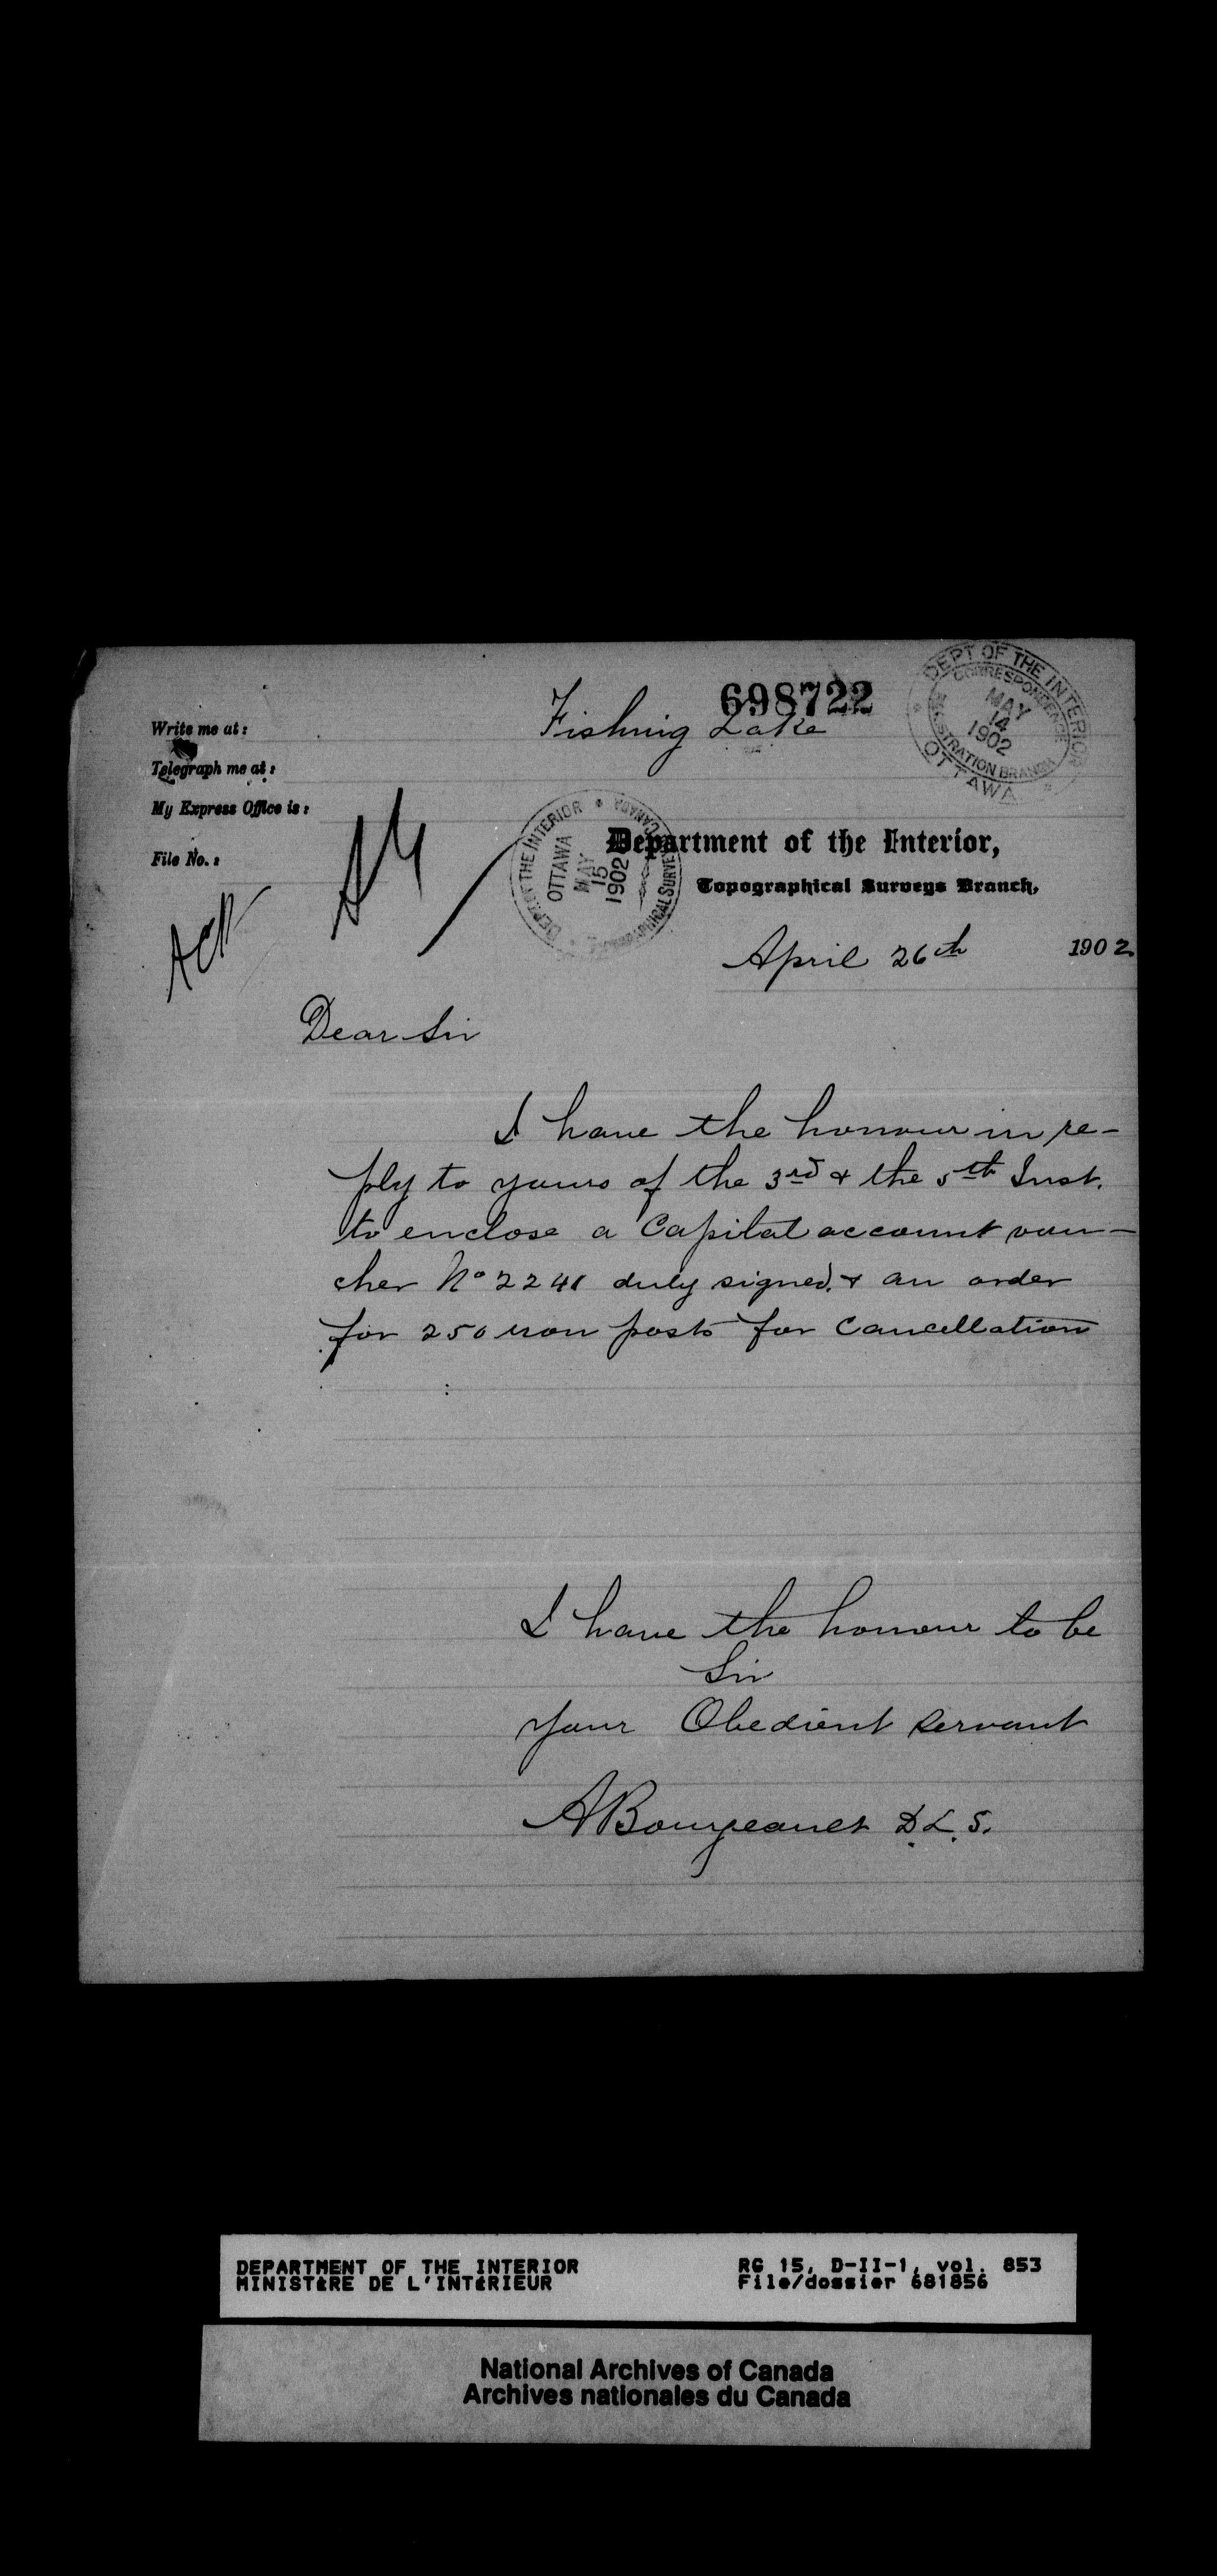 698722
DEPT OF THE INTERIOR
CORRESPONDENCE
MAY
14
1902
REGISTRATION BRANCH
OTTAWA
Write me at:
Fishing Lake
Telegraph me at:
My Express Office is:
File No.:
Ack
DEPT OF THE INTERIOR
OTTAWA
MAY
15
1902
TOPOGRAPHICAL SURVEYS
CANADA
Department of the Interior,
Topographical Surveys Branch,
April 26th 1902
Dear Sir
I have the honour in re-
ply to yours of the 3rd & the 5th Inst.
to enclose a Capital account vou-
cher No 2241 duly signed. & an order
for 250 iron posts for Cancellation
I have the honour to be
Sir
your Obedient servant
A Bourgeault D.L.S.
DEPARTMENT OF THE INTERIOR
MINISTÈRE DE L'INTÉRIEUR
RG 15, D-II-1, vol. 853
File/dossier 681856
National Archives of Canada
Archives nationales du Canada